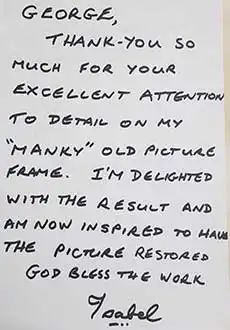 GEORGE,
THANK-YOU SO
MUCH FOR YOUR
EXCELLENT ATTENTION
TO DETAIL ON MY
"MANKY" OLD PICTURE
FRAME. I'M DELIGHTED
WITH THE RESULT AND
AM NOW INSPIRED TO HAVE
THE PICTURE RESTORED
GOD BLESS THE WORK
Isabel